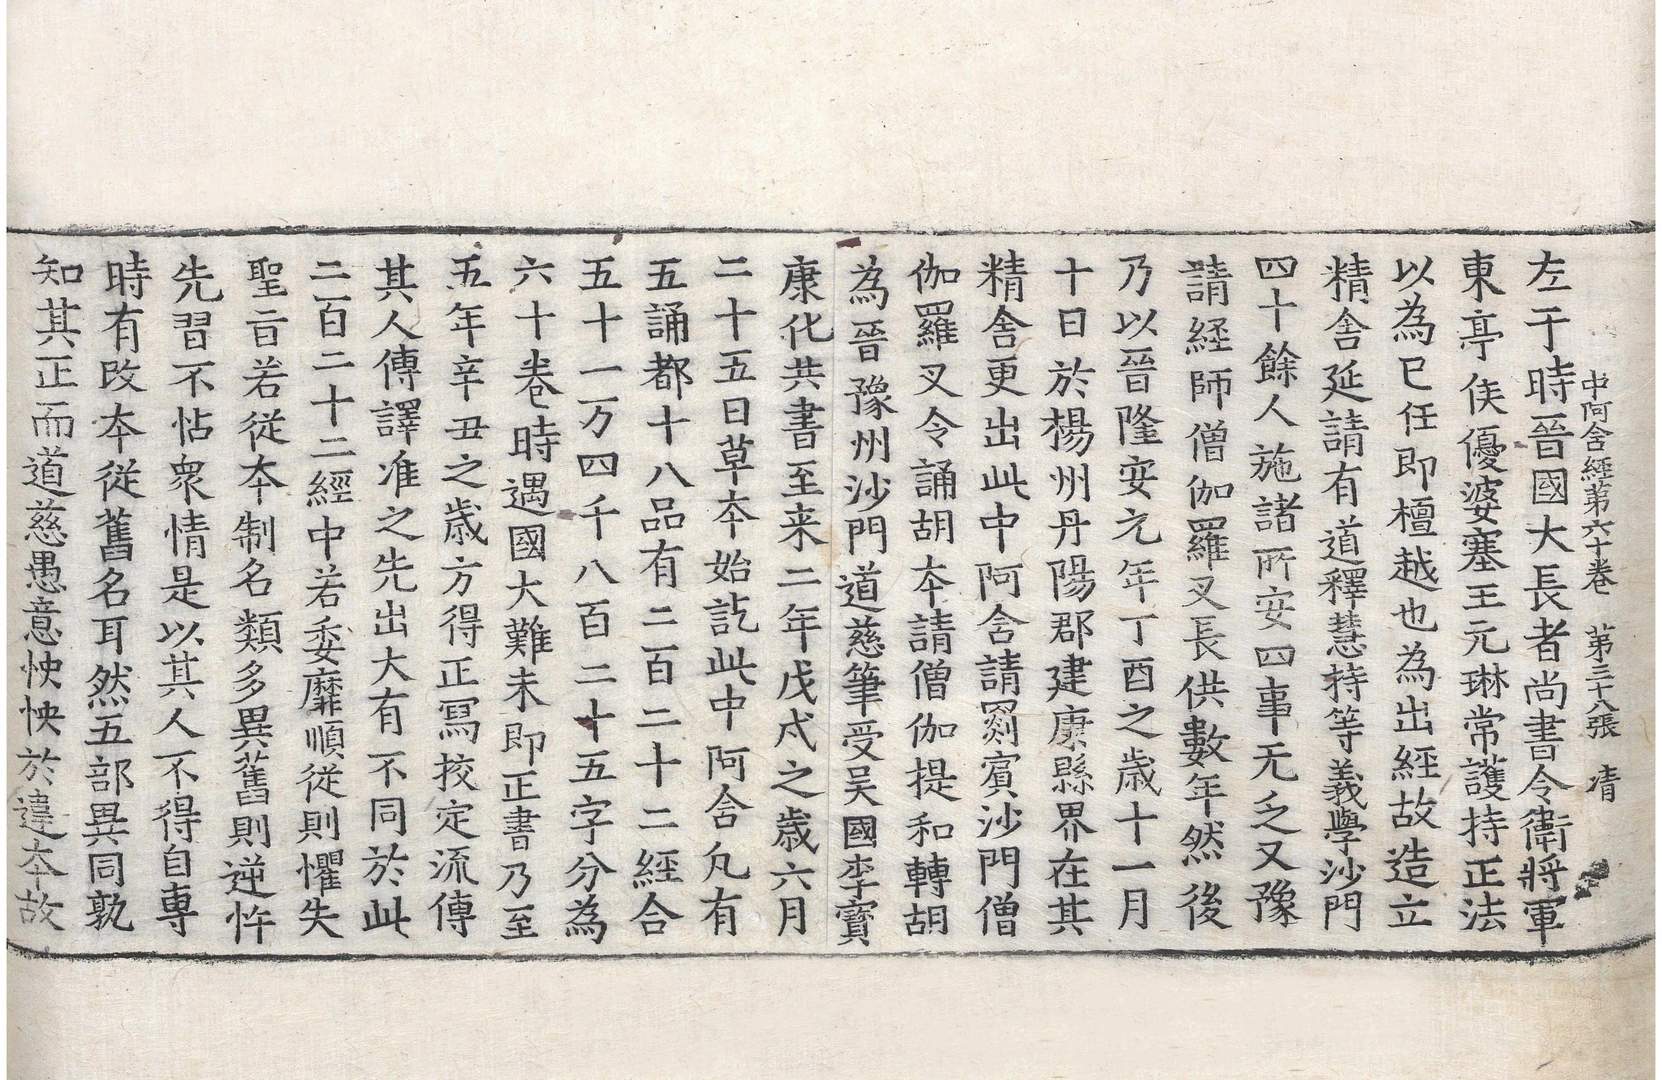 中阿含經第六十卷 第三十八張 清
左于時晉國大長者尚書令衛將軍
東亭侯優婆塞王元琳常護持正法
以為已任即檀越也為出經故造立
精舍延請有道釋慧持等義學沙門
四十餘人施諸所安四事无乏又豫
請経師僧伽羅叉長供數年然後
乃以晉隆安元年丁酉之歲十一月
十日於楊州丹陽郡建康縣界在其
精舍更出此中阿含請罽賓沙門僧
伽羅叉令誦胡本請僧伽提和轉胡
為晉豫州沙門道慈筆受吴國李寶
康化共書至来二年戊戌之歲六月
二十五日草本始訖此中阿含凡有
五誦都十八品有二百二十二經合
五十一万四千八百二十五字分為
六十卷時遇國大難未即正書乃至
五年辛丑之歲方得正冩挍定流傳
其人傳譯准之先出大有不同於此
二百二十二經中若委靡順從則懼失
聖旨若從本制名類多異舊則逆忤
先習不怗衆情是以其人不得自專
時有改本從舊名耳然五部異同孰
知其正而道慈愚意怏怏於違本故